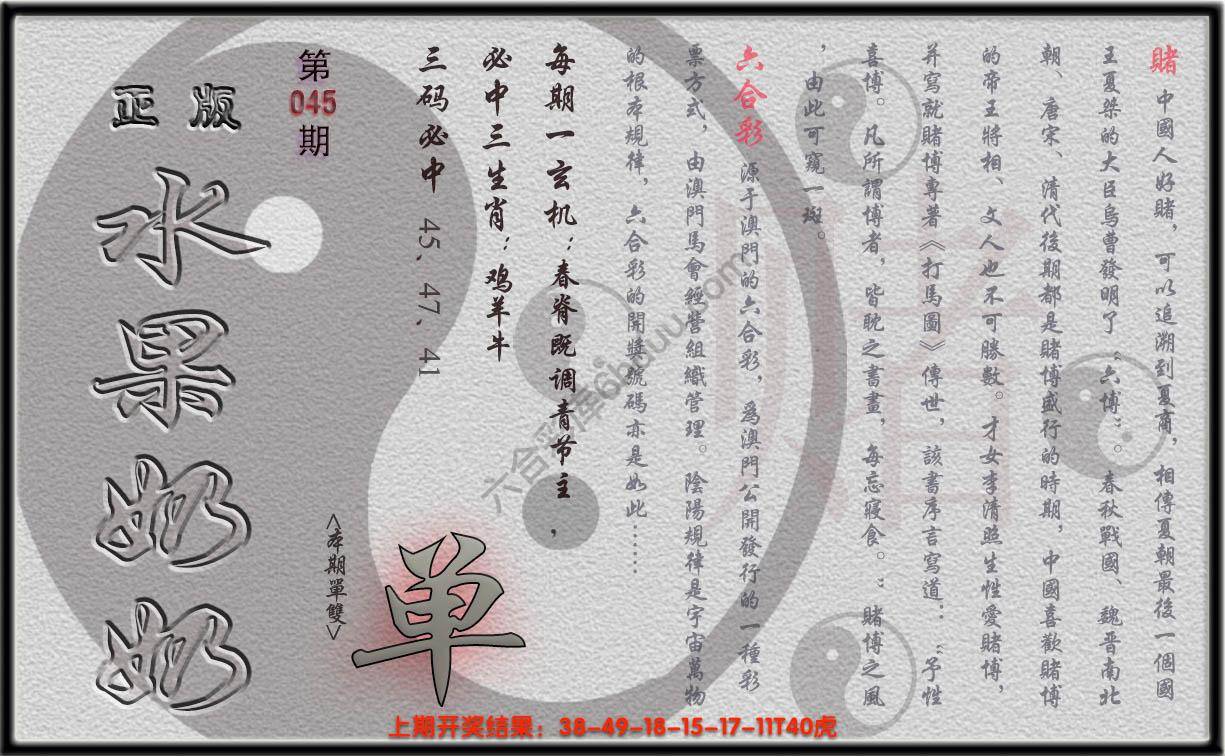 賭 中國人好賭，可以追溯到夏商，相傳夏朝最後一個國
王夏桀的大臣烏曹發明了“六博”。春秋戰國、魏晋南北
朝、唐宋、清代後期都是賭博盛行的時期，中國喜歡賭博
的帝王將相、文人也不可勝數。才女李清照生性愛賭博，
并寫就賭博專著《打馬圖》傳世，該書序言寫道：“予性
喜博。凡所謂博者，皆耽之書畫，每忘寢食。”賭博之風
，由此可窺一斑。
六合彩 源于澳門的六合彩，爲澳門公開發行的一種彩
票方式，由澳門馬會經營組織管理。陰陽規律是宇宙萬物
的根本規律，六合彩的開獎號碼亦是如此……
每期一玄机：春脊既调青节主，
必中三生肖：鸡羊牛
三码必中 45、47、41
<本期單雙>
单
第
045
期
正版
水果奶奶
上期开奖结果：38-49-18-15-17-11T40虎